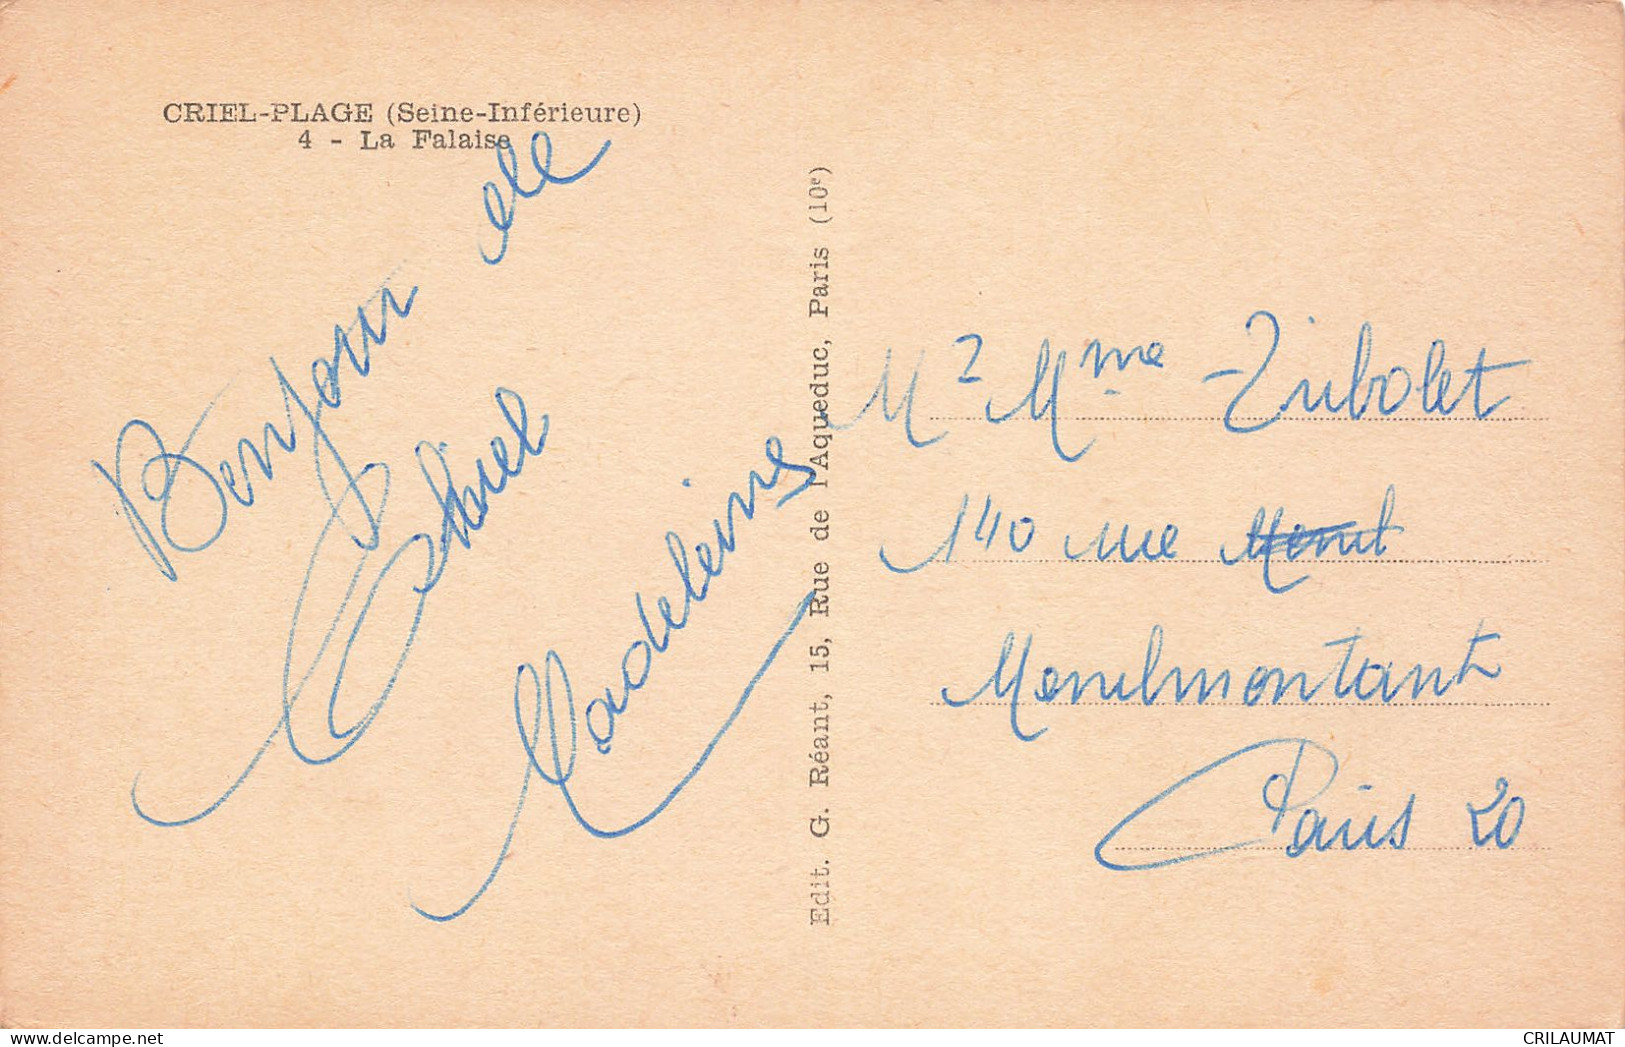 CRIEL-PLAGE (Seine-Inférieure)
4 - La Falaise
Bonjour de
Madeleine
Edit. G. Réant, 15, Rue de l'Aqueduc, Paris (10e)
Mr Mme Tubolet
140 rue Menil
Menilmontant
Paris 20
CRILAUMAT